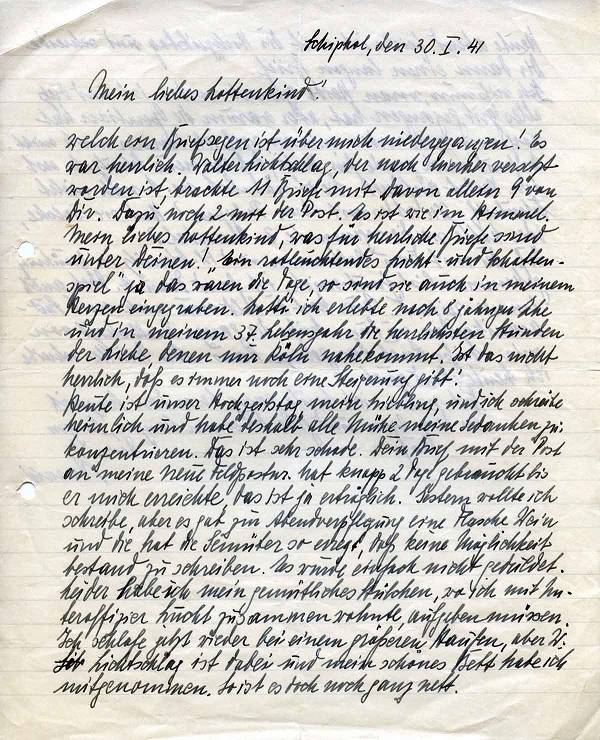 Schiphol, den 30. I. 41
Mein liebes Lottenkind!
welch ein Briefsegen ist über mich niedergegangen! Es
war herrlich. Walter Lichtschlag, der nach hierher versetzt
worden ist, brachte 11 Briefe mit davon allein 9 von
Dir. Dazu noch 2 mit der Post. Es ist wie im Himmel.
Mein liebes Lottenkind, was für herrliche Briefe sind
unter Deinen! Ein rotleuchtendes Licht- und Schatten-
spiel" ja das waren die Tage, so sind sie auch in meinem
Herzen eingegraben. Lotti ich erlebte nach 8 jähriger Ehe
und in meinem 37. Lebensjahr die herrlichsten Stunden
der Liebe denen nur Köln nahekommt. Ist das nicht
herrlich, daß es immer noch eine Steigerung gibt!
Heute ist unser Hochzeitstag mein Liebling, und ich schreibe
heimlich und habe deshalb alle Mühe meine Gedanken zu
konzentrieren. Das ist sehr schade. Dein Brief mit der Post
an meine neue Feldpostnr. hat knapp 2 Tage gebraucht bis
er mich erreichte, das ist ja erträglich. Gestern wollte ich
schreiben, aber es gab zur Abendverpflegung eine Flasche Wein
und die hat die Gemüter so erregt, daß keine Möglichkeit
bestand zu schreiben. Es wurde einfach nicht geduldet.
Leider habe ich mein gemütliches Stübchen, wo ich mit Un-
teroffizier Lucht zusammen wohnte, aufgeben müssen.
Ich schlafe jetzt wieder bei einem größeren Haufen, aber W.
Lichtschlag ist dabei und mein schönes Bett habe ich
mitgenommen. So ist es doch noch ganz nett.